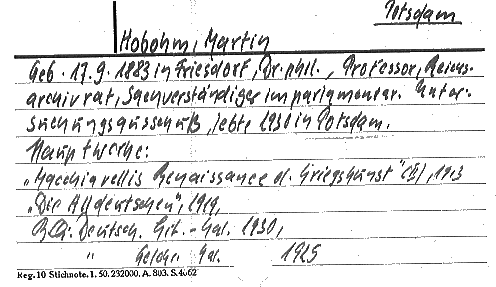 Potsdam
Hobohm, Martin
Geb. 17.9.1883 in Friesdorf, Dr. phil., Professor, Reichs-
archivrat, Sachverständiger im parlamentar. Unter-
suchungsausschuß, lebte 1930 in Potsdam.
Hauptwerke:
„Macchiavellis Renaissance d. Kriegskunst" (II), 1913
„Die Alldeutschen", 1919,
Deutsch. Lit. - Kal. 1930,
„ Gelehr. Kal. 1925
Reg. 10 Stichnote. 1. 50. 232000. A. 803. S. 4062